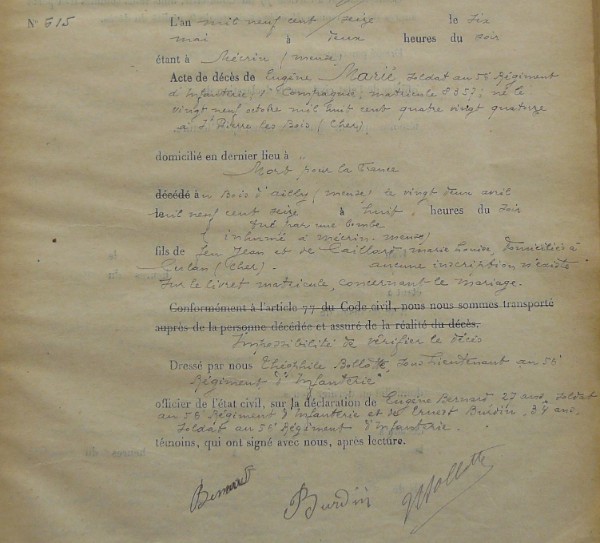 N° 615
L'an mil neuf cent seize le six
mai à deux heures du soir
étant à Mécrin (Meuse)
Acte de décès de Eugène Marié, soldat au 56e Régiment
d'Infanterie, 1re Compagnie, matricule 8357; né le
vingt neuf octobre mil huit cent quatre vingt quatorze
à St Pierre les Bois (Cher),
domicilié en dernier lieu à ..
Mort pour la France
décédé au Bois d'Ailly (Meuse) le vingt deux avril
mil neuf cent seize à huit heures du soir
tué par une bombe
inhumé à Mécrin-Meuse)
fils de feu Jean et de Caillard, marie Louise, domiciliés à
Culan (Cher). aucune inscription n'existe
sur le livret matricule, concernant le mariage.
Conformément à l'article 77 du Code civil, nous nous sommes transporté
auprès de la personne décédée et assuré de la réalité du décès.
Impossibilité de vérifier le décès
Dressé par nous Théophile Bollotte, sous lieutenant au 56e
Régiment d'Infanterie
officier de l'état civil, sur la déclaration de Eugène Bernard 27 ans, soldat
au 56 Régiment d'Infanterie et de Ernest Burdin, 34 ans,
soldat au 56e Régiment d'Infanterie.
témoins, qui ont signé avec nous, après lecture.
Bernard Burdin Bollotte